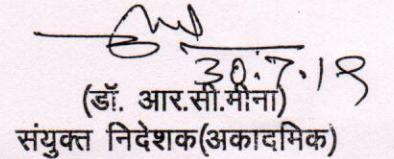 30.7.19
(डॉ. आर.सी.मीना)
संयुक्त निदेशक(अकादमिक)